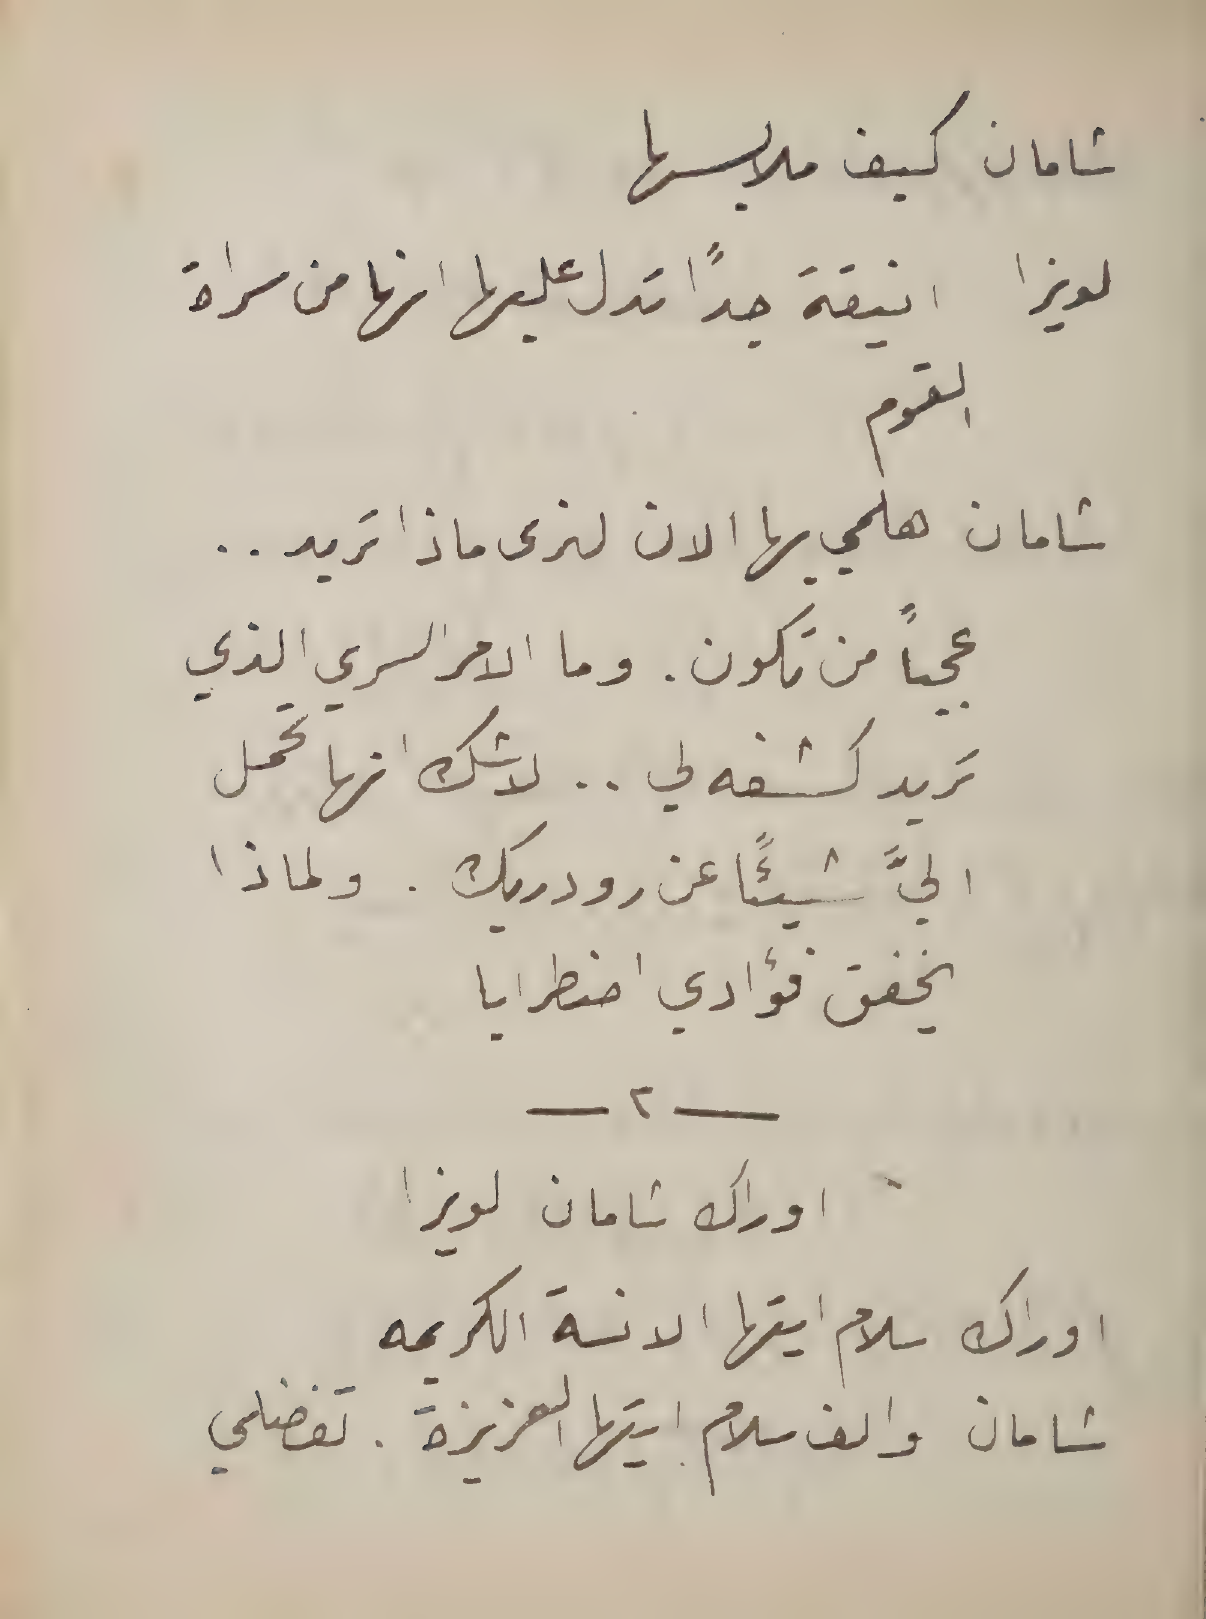 شامان كيف ملابسها
لويزا انيقة جدًا تدل عليها انها من سراة
القوم
شامان هلمي بها الان لنرى ماذا تريد ..
عجباً من تكون . وما الامر السري الذي
تريد كشفه لي .. لاشك انها تحمل
اليَّ شيئًا عن رودريك . ولماذا
يخفق فؤادي اضطرابا
— ٢ —
اوراك شامان لويزا
اوراك سلام ايتها الانسة الكريمه
شامان والف سلام ايتها العزيزة . تفضلي